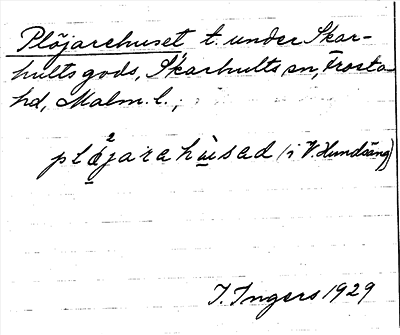 Plöjarehuset, t. under Skar-
hults gods, Skarhults sn, Frosta
hd, Malm. l.;
plǿ²jarahùsad (i V. Hundsäng)
I. Ingers 1929